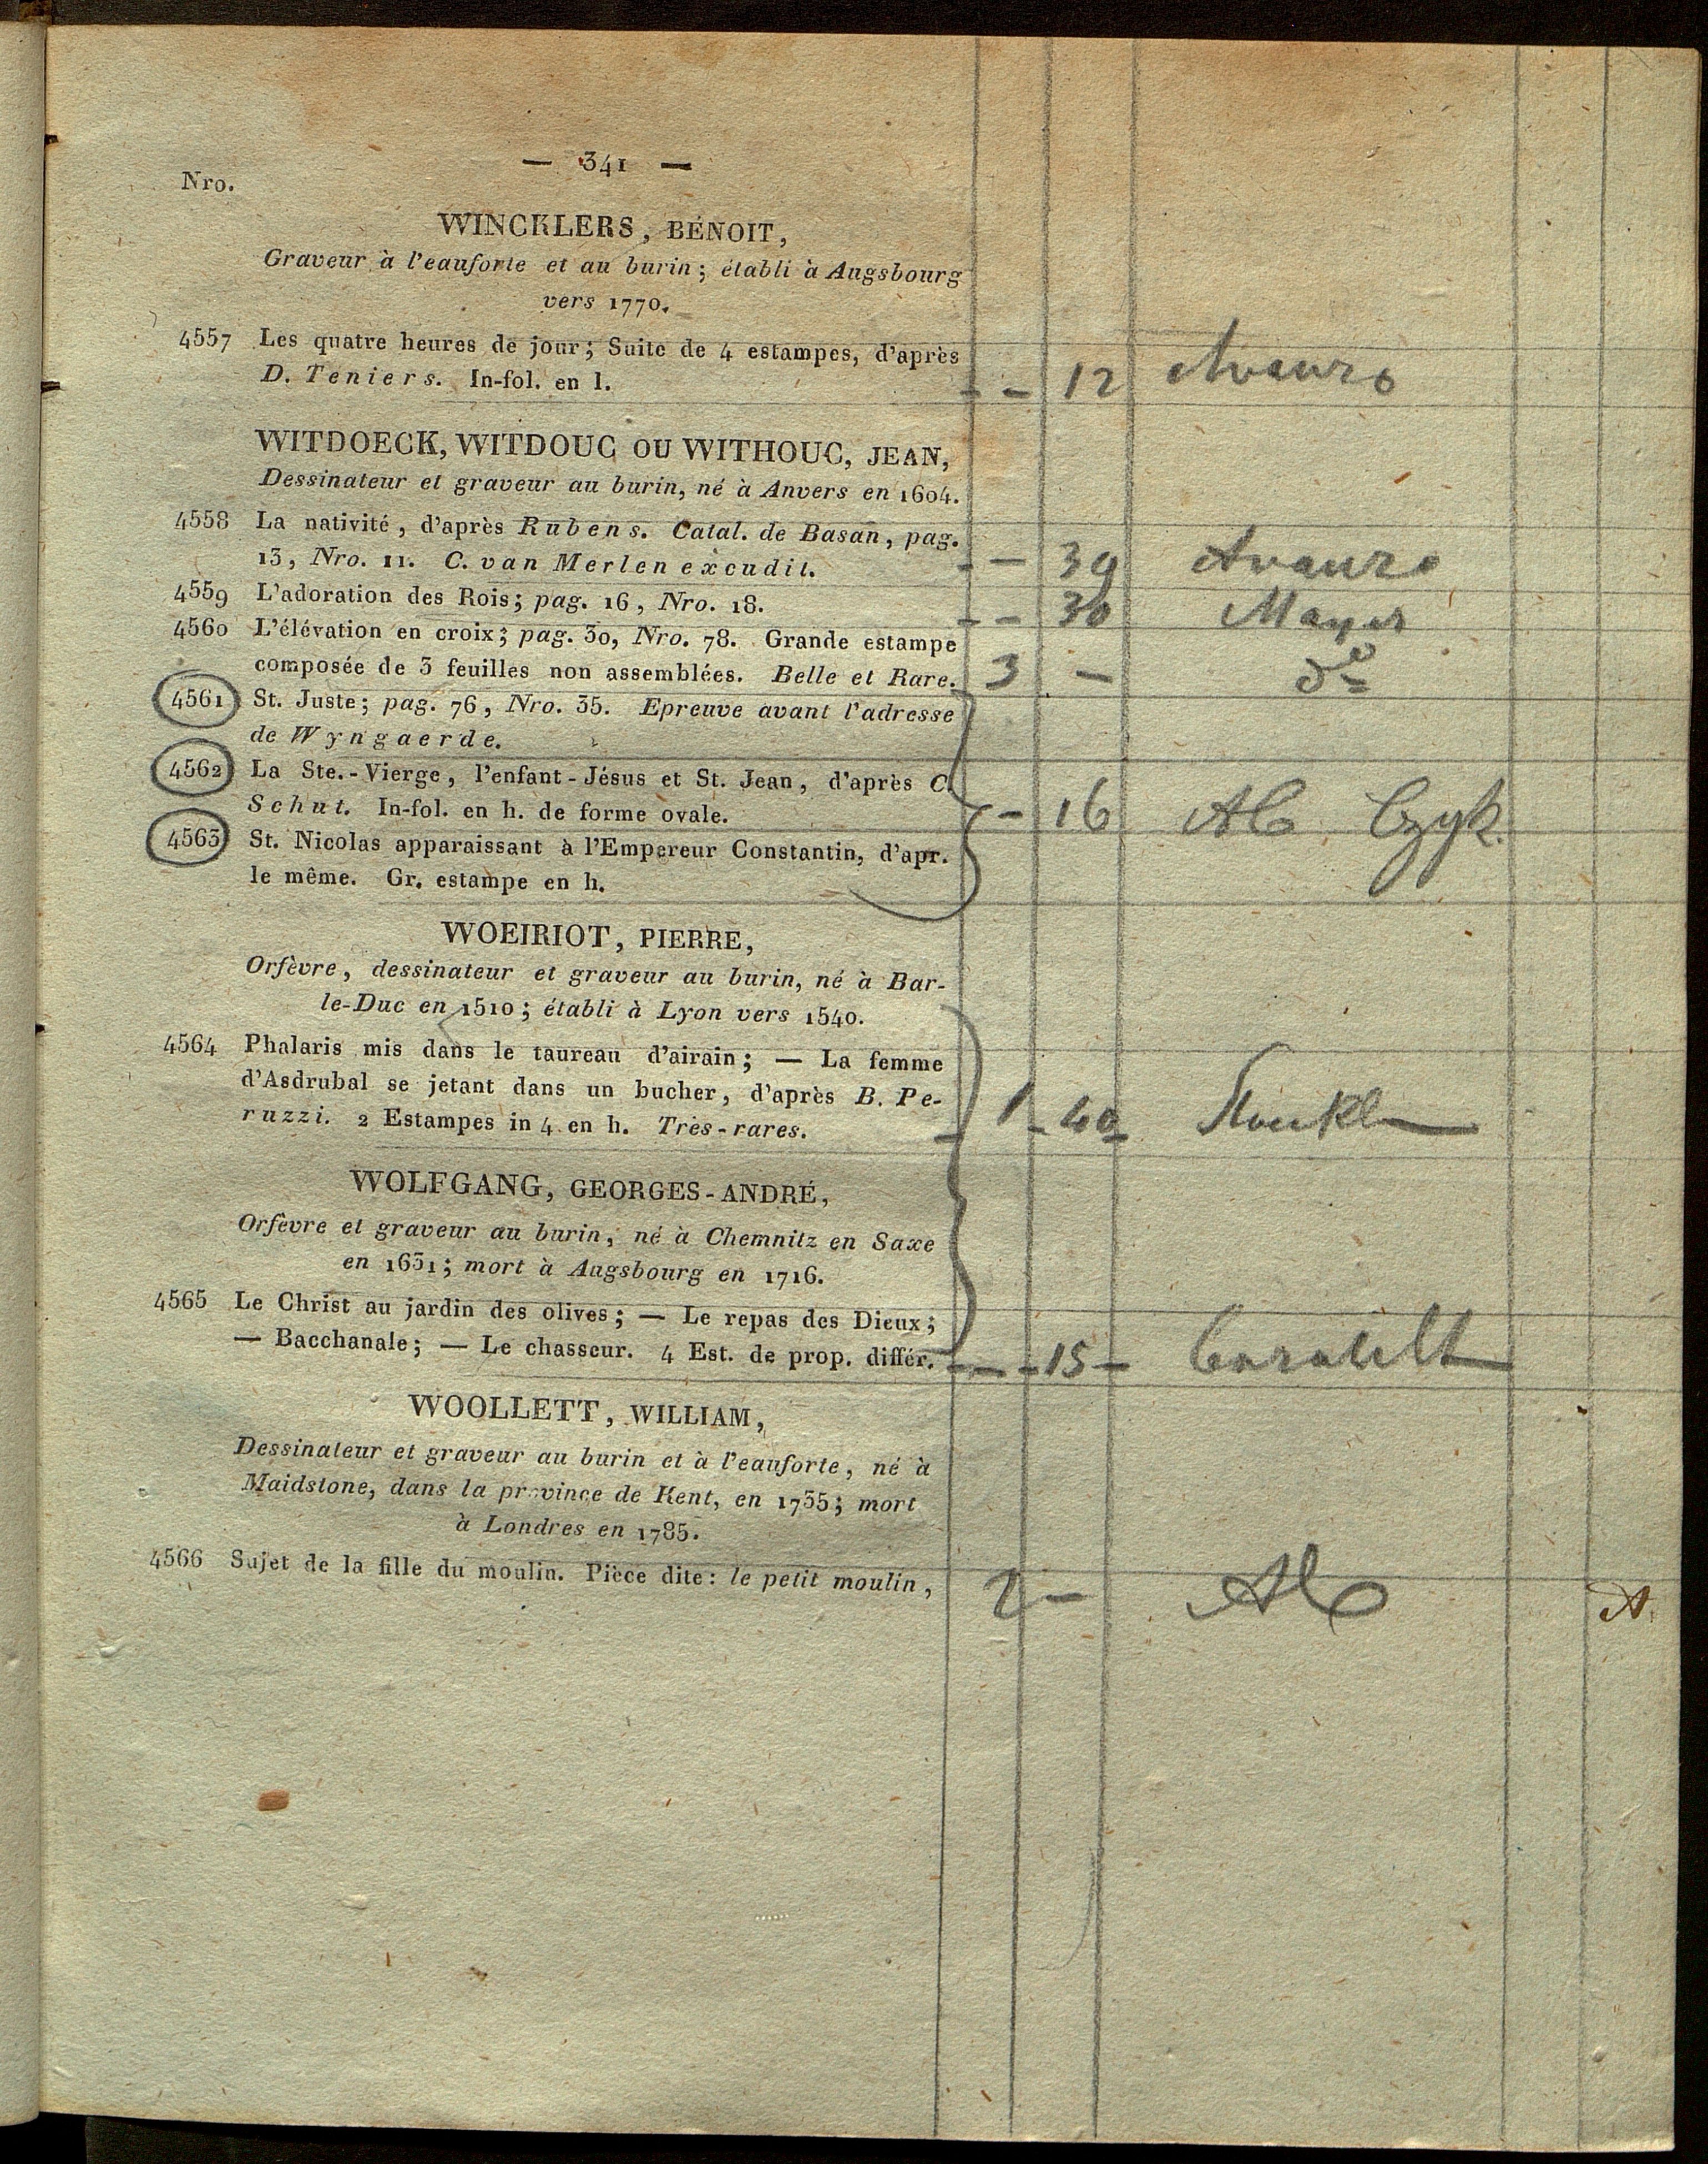 — 341 —
Nro.
WINCKLERS, BÉNOIT,
Graveur à l'eauforte et au burin; établi à Augsbourg
vers 1770.
4557 Les quatre heures de jour; Suite de 4 estampes, d'après
D. Teniers. In-fol. en l. - - 12
WITDOECK, WITDOUC OU WITHOUC, JEAN,
Dessinateur et graveur au burin, né à Anvers en 1604.
4558 La nativité, d'après Rubens. Catal. de Basan, pag.
13, Nro. 11. C. van Merlen excudit. - - 39
4559 L'adoration des Rois; pag. 16, Nro. 18. - - 30 Mayer
4560 L'élévation en croix; pag. 30, Nro. 78. Grande estampe
composée de 3 feuilles non assemblées. Belle et Rare. 3 - do
4561 St. Juste; pag. 76, Nro. 35. Epreuve avant l'adresse
de Wyngaerde.
4562 La Ste.-Vierge, l'enfant-Jésus et St. Jean, d'après C.
Schut. In-fol. en h. de forme ovale. - 16
4563 St. Nicolas apparaissant à l'Empereur Constantin, d'apr.
le même. Gr. estampe en h.
WOEIRIOT, PIERRE,
Orfèvre, dessinateur et graveur au burin, né à Bar-
le-Duc en 1510; établi à Lyon vers 1540.
4564 Phalaris mis dans le taureau d'airain; — La femme
d'Asdrubal se jetant dans un bucher, d'après B. Pe-
ruzzi. 2 Estampes in 4 en h. Très-rares. 1 - 40
WOLFGANG, GEORGES-ANDRÉ,
Orfèvre et graveur au burin, né à Chemnitz en Saxe
en 1631; mort à Augsbourg en 1716.
4565 Le Christ au jardin des olives; — Le repas des Dieux;
— Bacchanale; — Le chasseur. 4 Est. de prop. différ. - - 15 -
WOOLLETT, WILLIAM,
Dessinateur et graveur au burin et à l'eauforte, né à
Maidstone, dans la province de Kent, en 1735; mort
à Londres en 1785.
4566 Sujet de la fille du moulin. Pièce dite: le petit moulin, 2 -